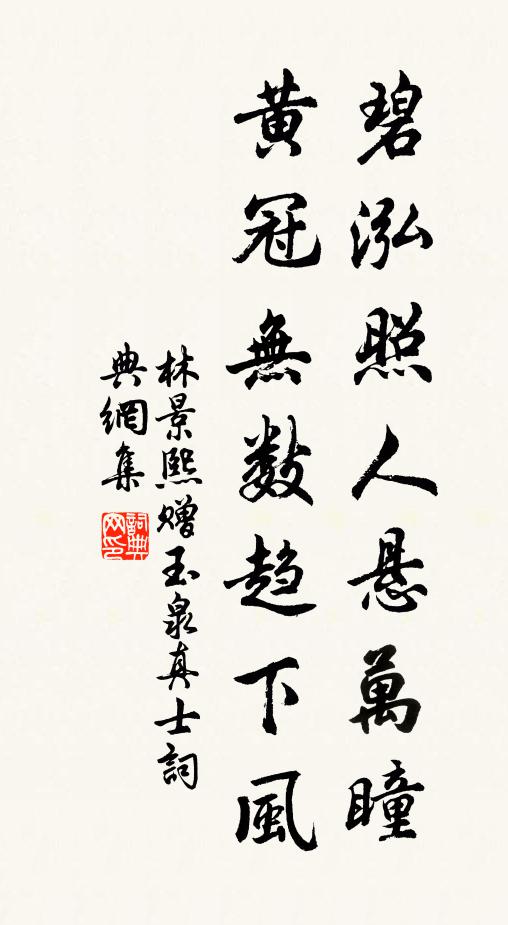 碧泓照人悬萬瞳
黃冠無数趋下風
林景熙赠玉泉真士詞
典網集
詞典网印